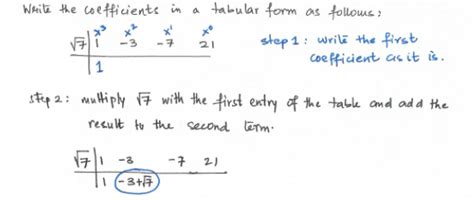 Write the coefficients in a tabular form as follows:
x³ x² x¹ x⁰
√7 | 1 -3 -7 21
1
step 1: write the first
coefficient as it is.
step 2: multiply √7 with the first entry of the table and add the
result to the second term.
√7 | 1 -3 -7 21
1 -3+√7